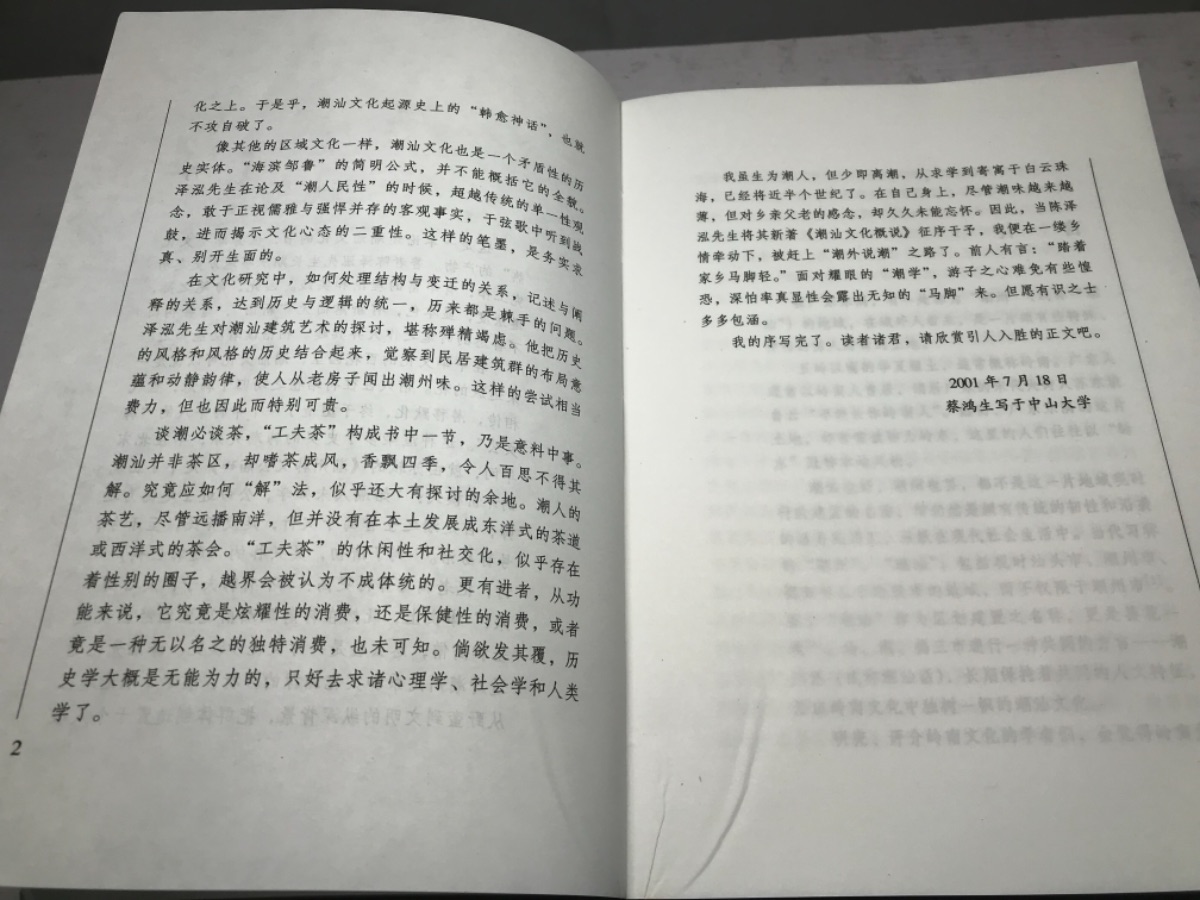 化之上。于是乎，潮汕文化起源史上的“韩愈神话”，也就
不攻自破了。
像其他的区域文化一样，潮汕文化也是一个矛盾性的历
史实体。“海滨邹鲁”的简明公式，并不能概括它的全貌。
泽泓先生在论及“潮人民性”的时候，超越传统的单一性观
念，敢于正视儒雅与强悍并存的客观事实，于弦歌中听到战
鼓，进而揭示文化心态的二重性。这样的笔墨，是务实求
真、别开生面的。
在文化研究中，如何处理结构与变迁的关系，记述与阐
释的关系，达到历史与逻辑的统一，历来都是棘手的问题。
泽泓先生对潮汕建筑艺术的探讨，堪称殚精竭虑。他把历史
的风格和风格的历史结合起来，觉察到民居建筑群的布局意
蕴和动静韵律，使人从老房子闻出潮州味。这样的尝试相当
费力，但也因此而特别可贵。
谈潮必谈茶，“工夫茶”构成书中一节，乃是意料中事。
潮汕并非茶区，却嗜茶成风，香飘四季，令人百思不得其
解。究竟应如何“解”法，似乎还大有探讨的余地。潮人的
茶艺，尽管远播南洋，但并没有在本土发展成东洋式的茶道
或西洋式的茶会。“工夫茶”的休闲性和社交化，似乎存在
着性别的圈子，越界会被认为不成体统的。更有进者，从功
能来说，它究竟是炫耀性的消费，还是保健性的消费，或者
竟是一种无以名之的独特消费，也未可知。倘欲发其覆，历
史学大概是无能为力的，只好去求诸心理学、社会学和人类
学了。
2
我虽生为潮人，但少即离潮，从求学到寄寓于白云珠
海，已经将近半个世纪了。在自己身上，尽管潮味越来越
薄，但对乡亲父老的感念，却久久未能忘怀。因此，当陈泽
泓先生将其新著《潮汕文化概说》征序于予，我便在一缕乡
情牵动下，被赶上“潮外说潮”之路了。前人有言：“踏着
家乡马脚轻。”面对耀眼的“潮学”，游子之心难免有些惶
恐，深怕率真显性会露出无知的“马脚”来。但愿有识之士
多多包涵。
我的序写完了。读者诸君，请欣赏引人入胜的正文吧。
2001年7月18日
蔡鸿生写于中山大学